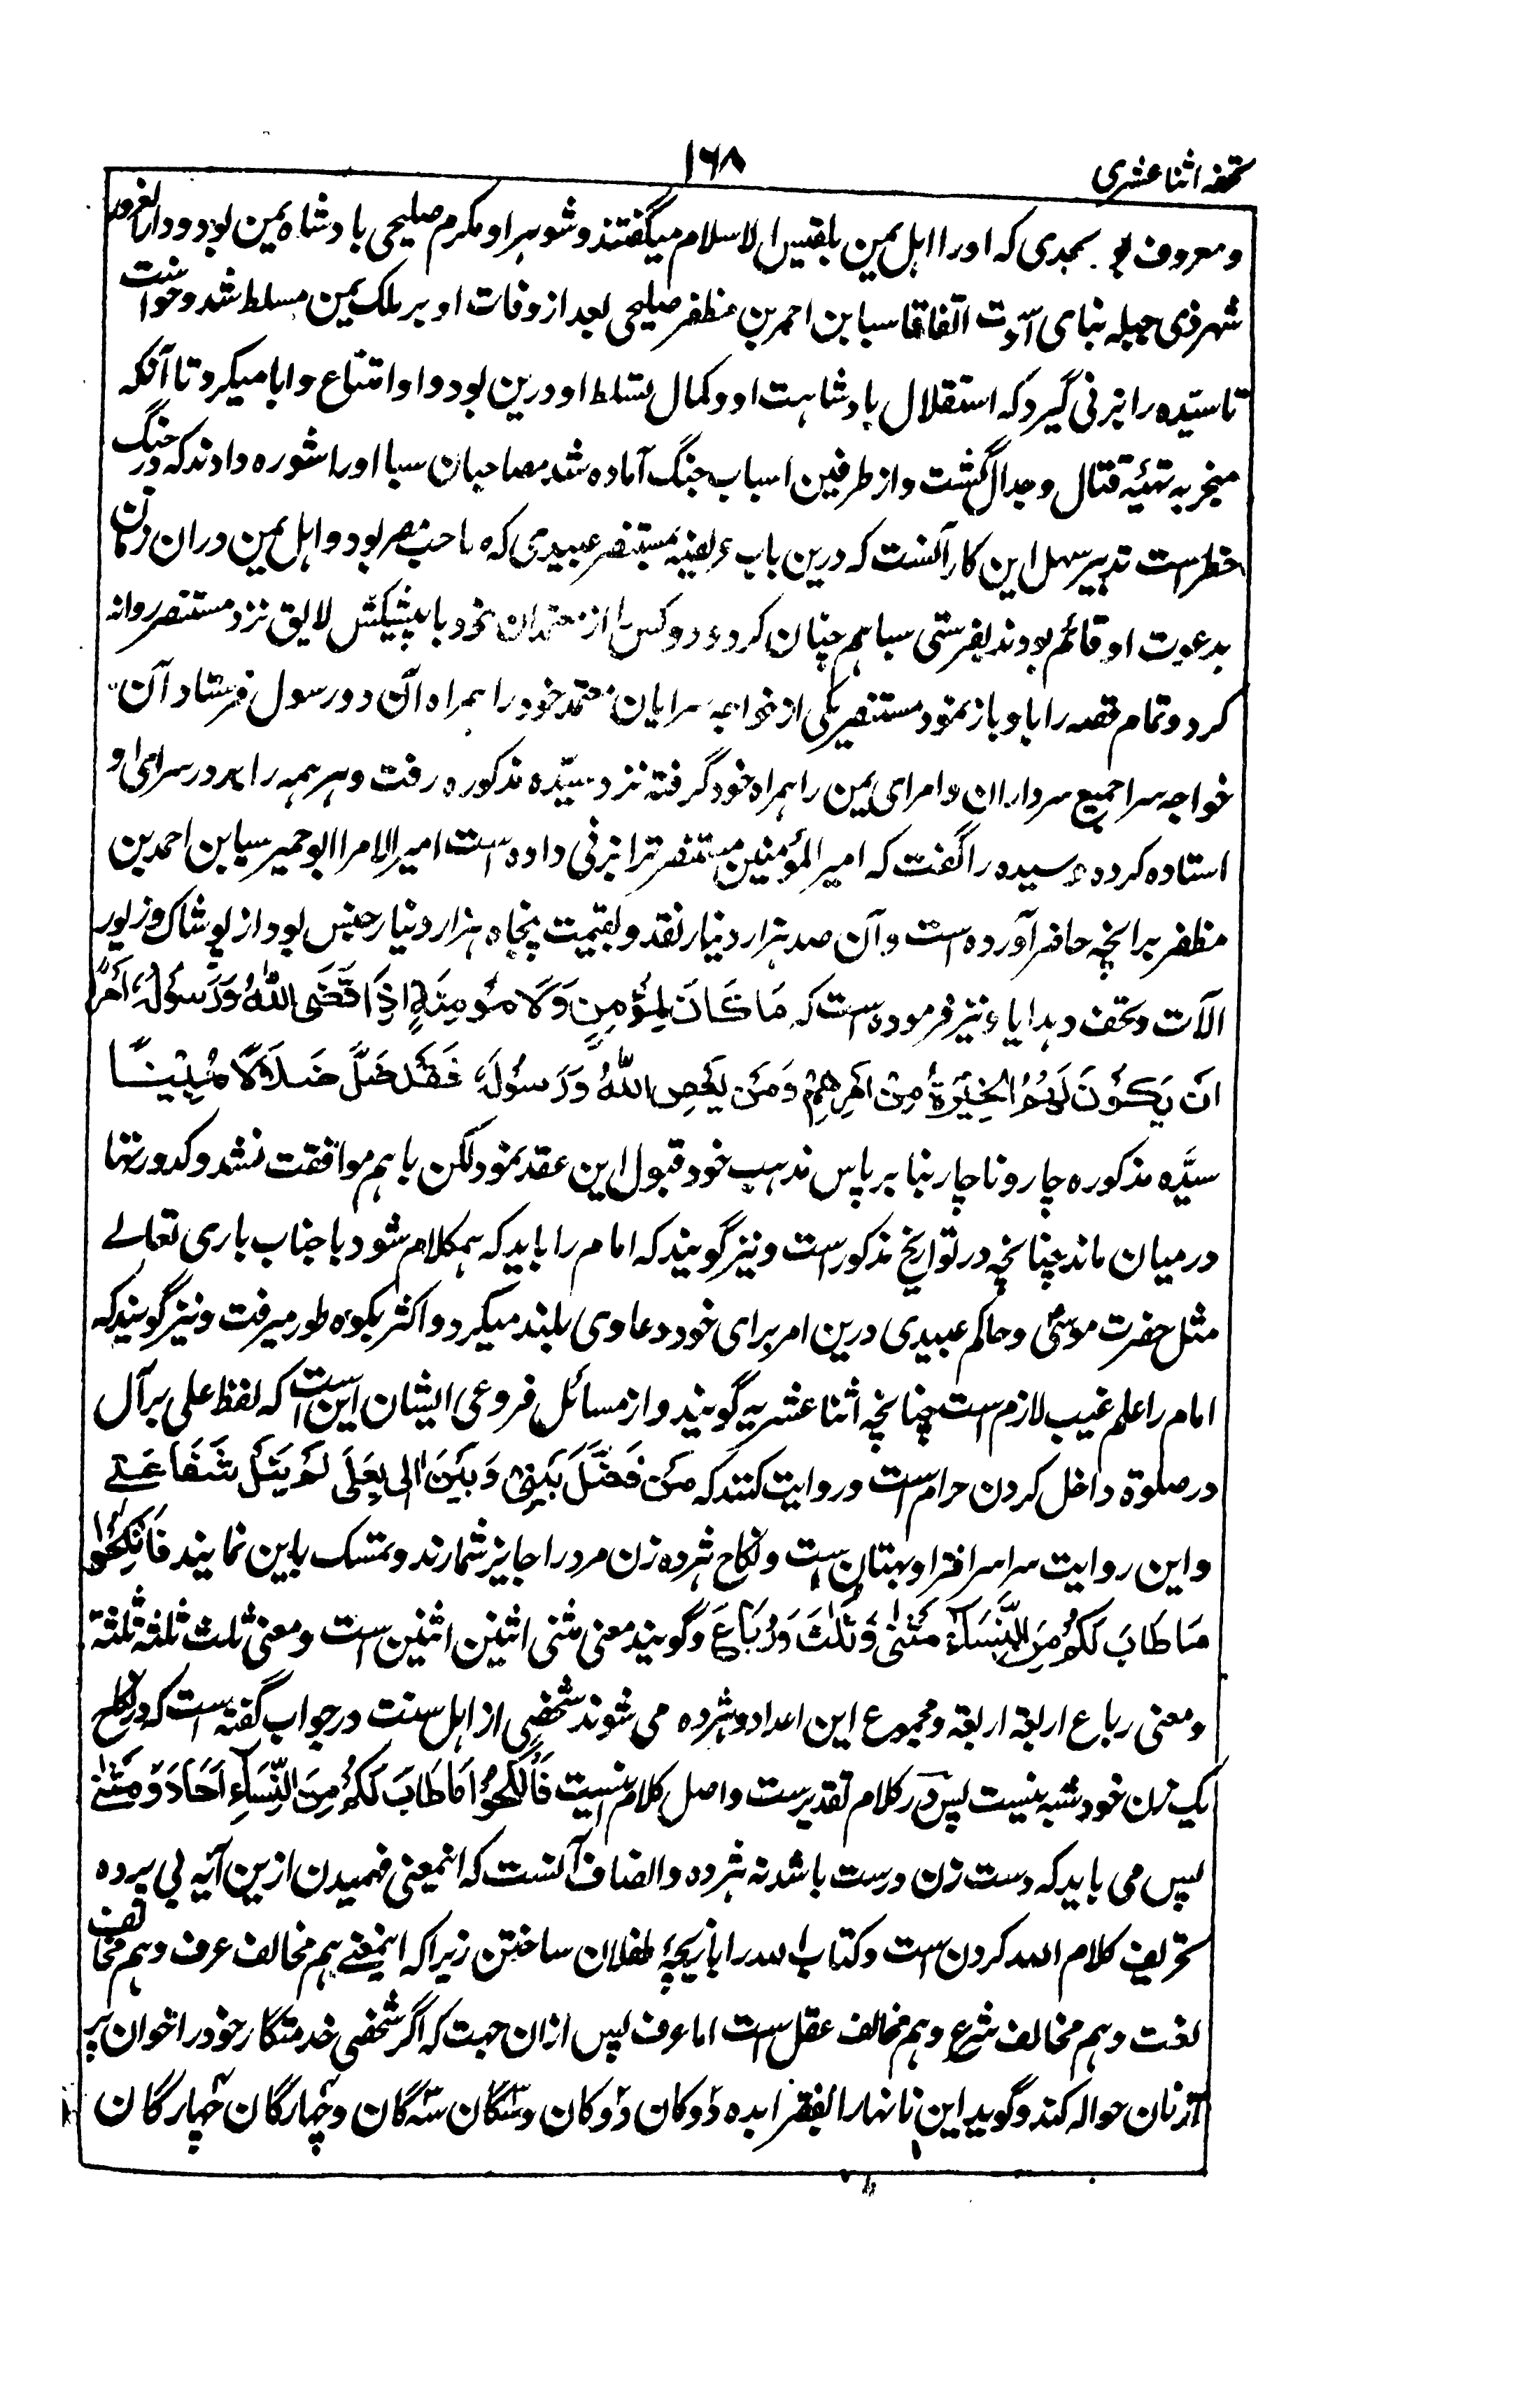 تحفہ اثنا عشری
۱۶۸
و معروف بمجدی که اورا اہل یمن بلقیس الاسلام میگفتند و شوہر او مکرم صلیحی بادشاہ یمن بود و دار العز در
شہر ذی جبلہ بنای اوست اتفاقا سبا بن احمد بن مظفر صلیحی بعد از وفات او بر ملک یمن مسلط شد و خواست
تا سیّدہ را بزنی گیرد که استقلال بادشاہت او و کمال تسلط او درین بود و او امتناع و ابا میکرد تا آنکه
منجر بہ تہئیۂ قتال و جدال گشت و از طرفین اسباب جنگ آمادہ شد مصاحبان سبا اورا مشورہ دادند که در جنگ
خطر است تدبیر سہل این کار آنست که درین باب عریضہ بمستنصر عبیدی که صاحب مصر بود و اہل یمن دران زمان
بدعوت او قائم بودند بفرستی سبا ہم چنان کرد و دو کس را از معتمدان خود با پیشکش لایق نزد مستنصر روانہ
کرد و تمام قصہ را باو باز نمود مستنصر یکی از خواجہ سرایان معتمد خود را ہمراہ آن دو رسول فرستاد آن
خواجہ سرا جمیع سرداران و امرای یمن را ہمراہ خود گرفتہ نزد سیّدہ مذکورہ رفت و ہر ہمہ را بر در سرای او
استادہ کردہ و سیدہ را گفت که امیر المؤمنین مستنصر ترا بزنی دادہ است امیر الامرا ابو حمیر سبا بن احمد بن
مظفر برانچہ حاضر آوردہ است و آن صد ہزار دینار نقد و بقیمت پنجاہ ہزار دینار جنس بود از پوشاک و زیور
آلات و تحف و ہدایا و نیز فرمودہ است که مَا كَانَ لِمُؤْمِنٍ وَّلَا مُؤْمِنَةٍ اِذَا قَضَى اللّٰهُ وَرَسُوْلُهٗ اَمْرًا
اَنْ يَّكُوْنَ لَهُمُ الْخِيَرَةُ مِنْ اَمْرِهِمْ وَمَنْ يَّعْصِ اللّٰهَ وَرَسُوْلَهٗ فَقَدْ ضَلَّ ضَلَالًا مُّبِيْنًا
سیّدہ مذکورہ چار و ناچار بنابر پاس مذہب خود قبول این عقد نمود لکن باہم موافقت نشد و کدورتہا
درمیان ماند چنانچہ در تواریخ مذکور است و نیز گویند که امام را باید که ہمکلام شود با جناب باری تعالے
مثل حضرت موسیٰ و حاکم عبیدی درین امر برای خود دعاوی بلند میکرد و اکثر بکوہ طور میرفت و نیز گویند که
امام را علم غیب لازم است چنانچہ اثنا عشریہ گویند و از مسائل فروعی ایشان این است که لفظ علی بر آل
در صلوة داخل کردن حرام است و روایت کنند که مَنْ فَصَلَ بَيْنِيْ وَبَيْنَ اٰلِيْ بِعَلٰى لَمْ يَنَلْ شَفَاعَتِے
و این روایت سراسر افترا و بہتان است و نکاح ہژدہ زن مرد را جایز شمارند و تمسک باین نمایند فَانْكِحُوْا
مَا طَابَ لَكُمْ مِنَ النِّسَاءِ مَثْنٰى وَثُلٰثَ وَرُبَاعَ و گویند معنی مثنی اثنین اثنین است و معنی ثلث ثلثہ ثلثہ
و معنی رباع اربعہ اربعہ و مجموع این اعداد ہژدہ می شوند شخصی از اہل سنت در جواب گفتہ است که در نکاح
یک زن خود شبہ نیست پس در کلام تقدیرست و اصل کلام اینست فَانْكِحُوْا مَا طَابَ لَكُمْ مِنَ النِّسَاءِ اُحَادَ وَمَثْنٰے
پس می باید که بست زن درست باشد نہ ہژدہ و انصاف آنست که اینمعنی فہمیدن ازین آیہ بی پردہ
تحریف کلام اللہ کردن است و کتاب اللہ را بازیچۂ طفلان ساختن زیرا که اینمعنے ہم مخالف عرف و ہم مخالف
لغت و ہم مخالف شرع و ہم مخالف عقل ست اما عرف پس ازان جہت که اگر شخصی خدمتگار خود را خوان پر
از نان حوالہ کند و گوید این نانہا را بفقرا بدہ دوگان دوگان و سہ گان سہ گان و چہارگان چہارگان